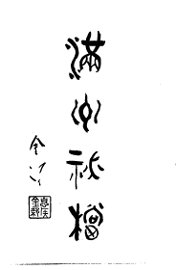 滿州祕檔
金梁